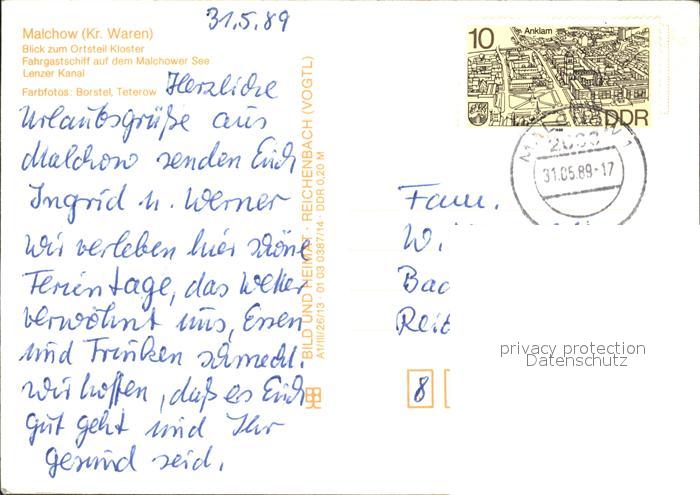 31.5.89
Malchow (Kr. Waren)
Blick zum Ortsteil Kloster
Fahrgastschiff auf dem Malchower See
Lenzer Kanal
Farbfotos: Borstel, Teterow
Herzliche
Urlaubsgrüße aus
Malchow senden Euch
Ingrid u. Werner
Wir verleben hier schöne
Ferientage, das Wetter
verwöhnt uns, Essen
und Trinken schmeckt.
Wir hoffen, daß es Euch
gut geht und Ihr
gesund seid.
BILD UND HEIMAT · REICHENBACH (VOGTL)
A1/III/26/13 01 03 0387/14 · DDR 0,20 M
10
Anklam
DDR
31.05.89-17
Fam.
W.
Bad
Reit
8
privacy protection
Datenschutz